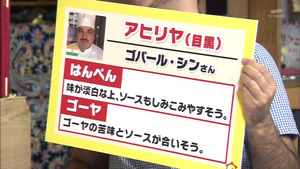 アヒリヤ(目黒)
ゴパール・シンさん
はんぺん
味が淡白な上、ソースもしみこみやすそう。
ゴーヤ
ゴーヤの苦味とソースが合いそう。